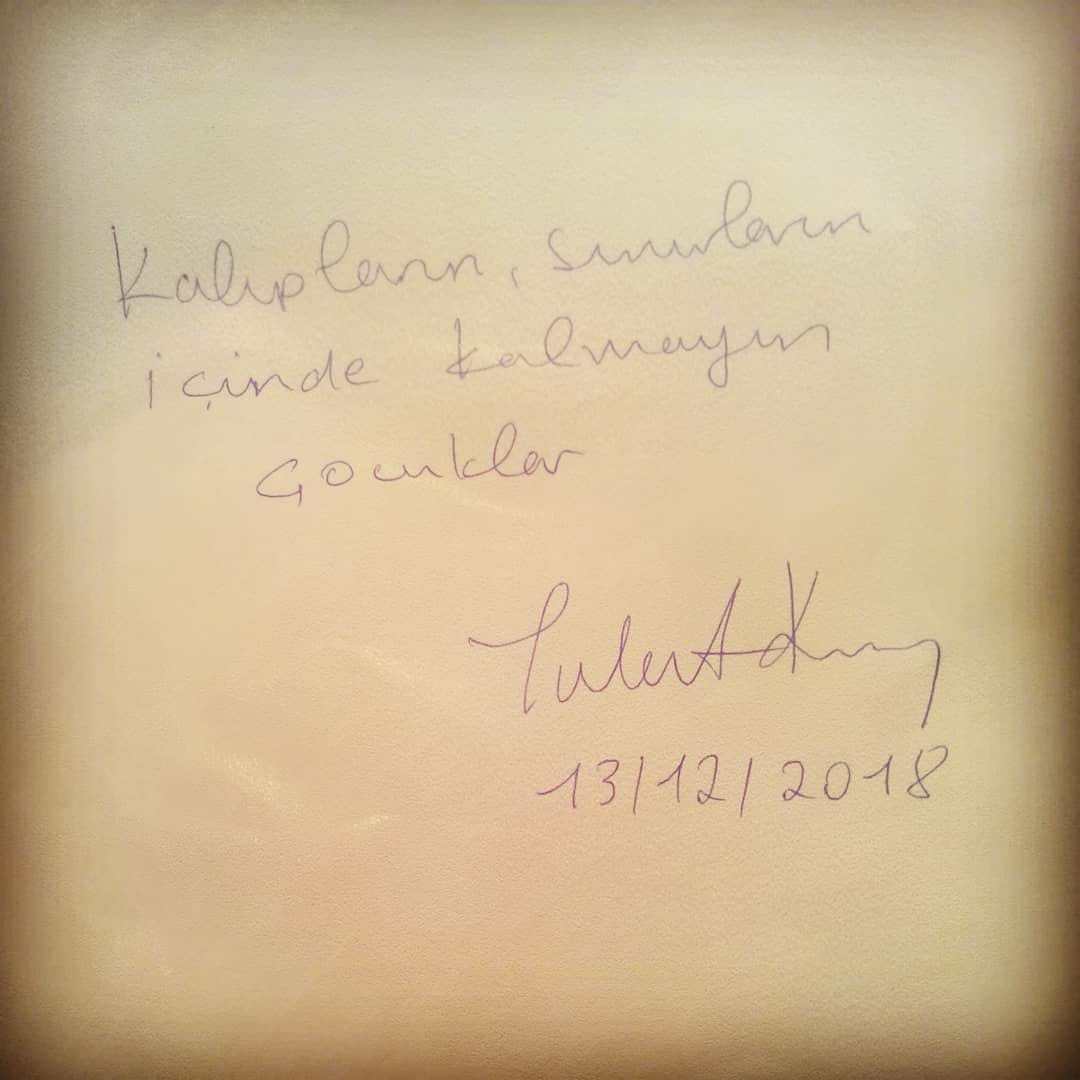 Kalıpların, sınırların
içinde kalmayın
çocuklar
13/12/2018